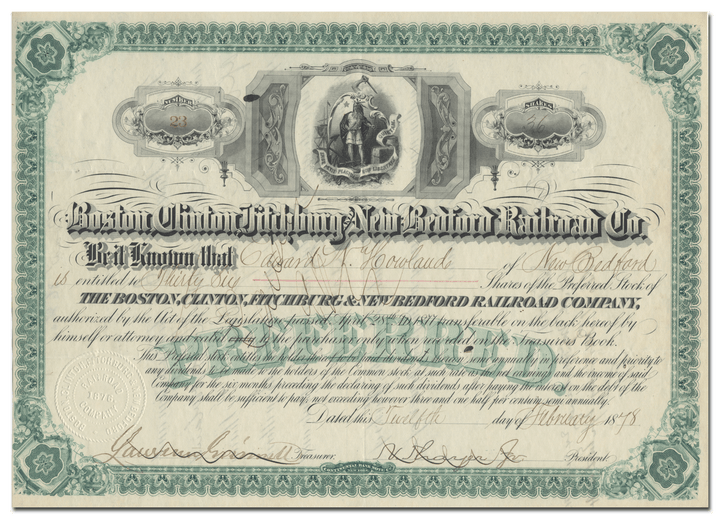 NUMBER
23
SHARES
36
Boston, Clinton, Fitchburg and New Bedford Railroad Co.
Be it Known that Edward W. Howland of New Bedford
is entitled to Thirty Six Shares of the Preferred Stock of
THE BOSTON, CLINTON, FITCHBURG & NEW BEDFORD RAILROAD COMPANY,
authorized by the Act of the Legislature passed April transferable on the back hereof by
himself or attorney and valid only to the purchaser when recorded on the Treasurers Book.
PREFERRED
This Preferred stock entitles the holder to semi annually in preference and priority to
any dividends to be made to the holders of the Common stock at such rate as the net earnings and the income of said
Company for the six months preceding the declaring of such dividends after paying the interest on the debt of the
Company shall be sufficient to pay, not exceeding however three and one half per centum semi annually.
1876
Dated this Twelfth day of February 1878
Treasurer,
President